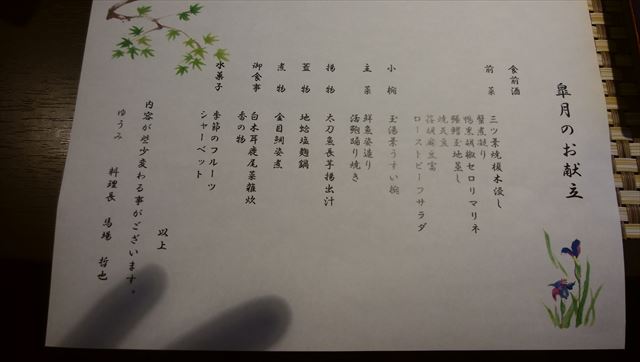 皐月のお献立
食前酒
前菜
三ツ葉焼榎木浸し
蟹煮凝り
鴨黒胡椒セロリマリネ
鰻鱈玉地蒸し
焼天豆
筍胡麻豆富
ローストビーフサラダ
小椀
玉湯葉うすい椀
主菜
鮮魚姿造り
活鮑踊り焼き
揚物
太刀魚長芋揚出汁
蓋物
地蛤塩麹鍋
煮物
金目鯛姿煮
御食事
白木耳鹿尾菜雑炊
香の物
水菓子
季節のフルーツ
シャーベット
以上
内容が些少変わる事がございます。
ゆうみ 料理長 馬場 哲也